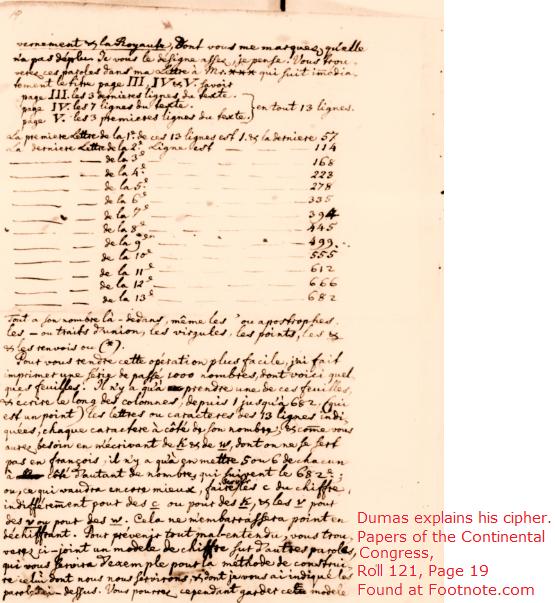 vernement & la Royauté, dont vous me marquez qu'elle
n'a pas déplu. Je vous le désigne assez, je pense. Vous trou-
verez ces paroles dans ma Lettre à Mr. xxx qui suit immédia-
tement le titre page III, IV & V. savoir
page III. les 3 dernieres lignes du texte.
page IV. les 7 lignes du texte.
page V. les 3 premieres lignes du texte.
en tout 13 lignes.
La premiere Lettre de la 1e. de ces 13 lignes est 1. & la derniere 57
La derniere Lettre de la 2e. Ligne est 114
de la 3e 168
de la 4e 223
de la 5e 278
de la 6e 335
de la 7e 394
de la 8e 445
de la 9e 499
de la 10e 555
de la 11e 612
de la 12e 666
de la 13e 682
Tout a son nombre là-dedans, même les ' ou apostrophes,
les - ou traits d'union, les virgules, les points, les &
& les renvois ou (*).
Pour vous rendre cette opération plus facile, j'ai fait
imprimer une série de passé 1000 nombres, dont voici quel-
ques feuilles. Il n'y a qu'à prendre une de ces feuilles,
& écrire le long des colonnes, depuis 1 jusqu'à 682 (qui
est un point) les lettres ou caracteres des 13 lignes indi-
quées, chaque caractere à côté de son nombre; & comme vous
aurez besoin en m'écrivant de k & de w, dont on ne se sert
pas en françois, il n'y a qu'à en mettre 5 ou 6 de chacun
à côté d'autant de nombres qui suivent le 682e;
ou, ce qui vaudra encore mieux, faire servir les c du chiffre,
indifféremment pour des c ou pour des k, & les v pour
des v ou pour des w. Cela ne m'embarrassera point en
déchiffrant. Pour prévenir tout malentendu, vous trou-
verez ci-joint un modele de chiffre sur d'autres paroles,
qui vous servira d'exemple pour la méthode de construi-
re celui dont nous nous servirons, & dont je vous ai indiqué les
paroles ci-dessus. Vous pourrez cependant garder cette modele
Dumas explains his cipher.
Papers of the Continental
Congress,
Roll 121, Page 19
Found at Footnote.com